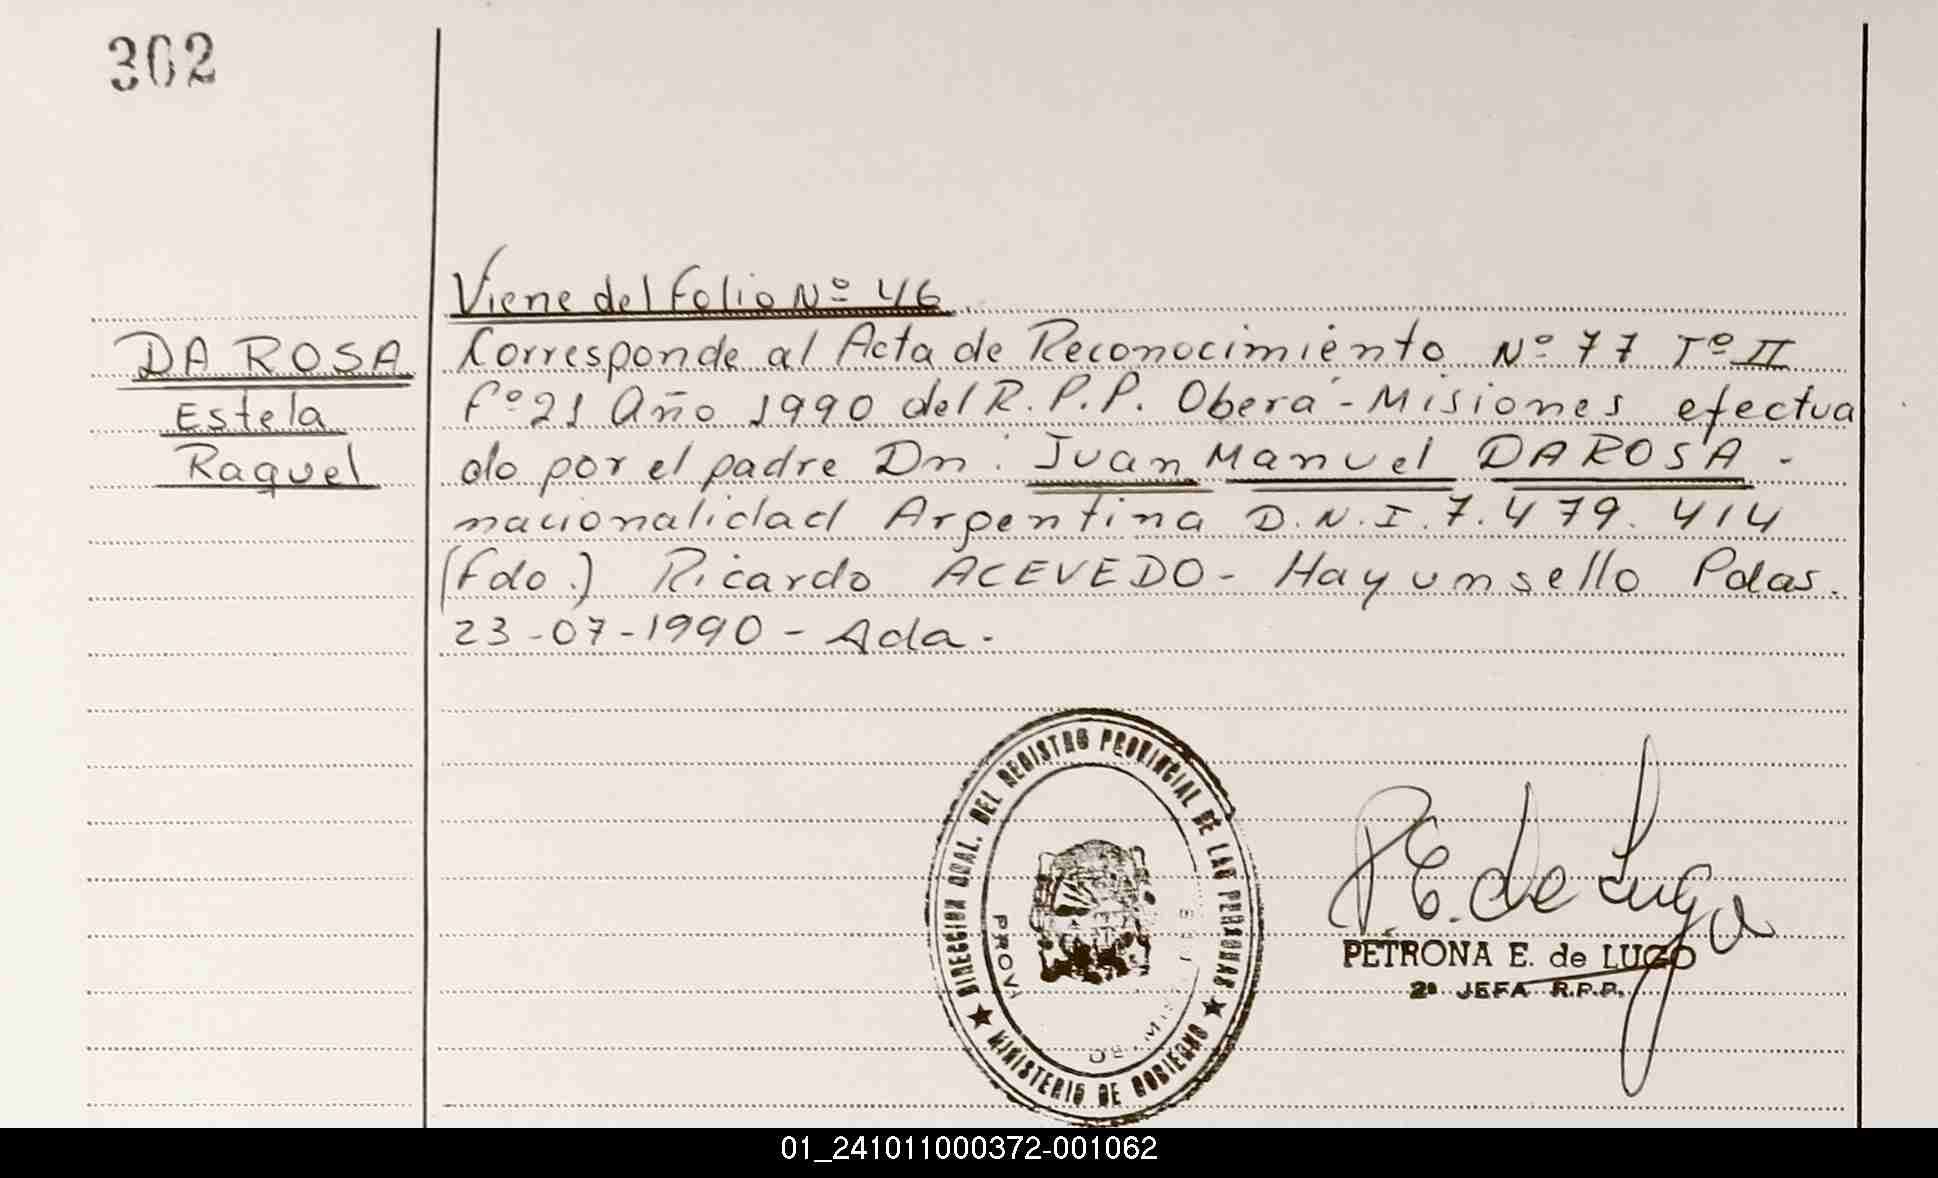 302
Viene del folio Nº 46
DA ROSA
Estela
Raquel
Corresponde al Acta de Reconocimiento Nº 77 Tº II
Fº 21 Año 1990 del R.P.P. Oberá - Misiones efectua
do por el padre Dn. Juan Manuel DA ROSA -
nacionalidad Argentina D.N.I. 7.479.414
(Fdo.) Ricardo ACEVEDO - Hay un sello Pdas.
23-07-1990 - Ada.
DIRECCION GRAL. DEL REGISTRO PROVINCIAL DE LAS PERSONAS
MINISTERIO DE GOBIERNO
P. E. de Lugo
PETRONA E. de LUGO
2ª JEFA R.P.P.
01_241011000372-001062